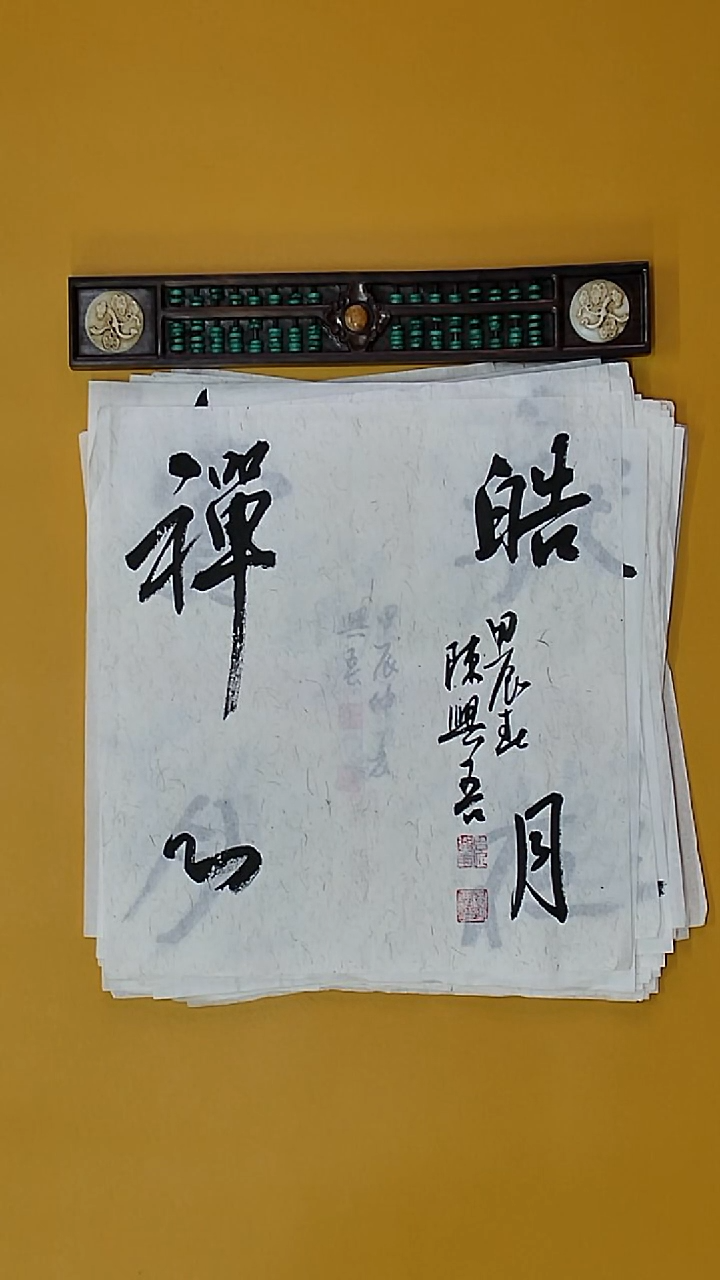 皓月
禪心
甲辰春
陳興吾